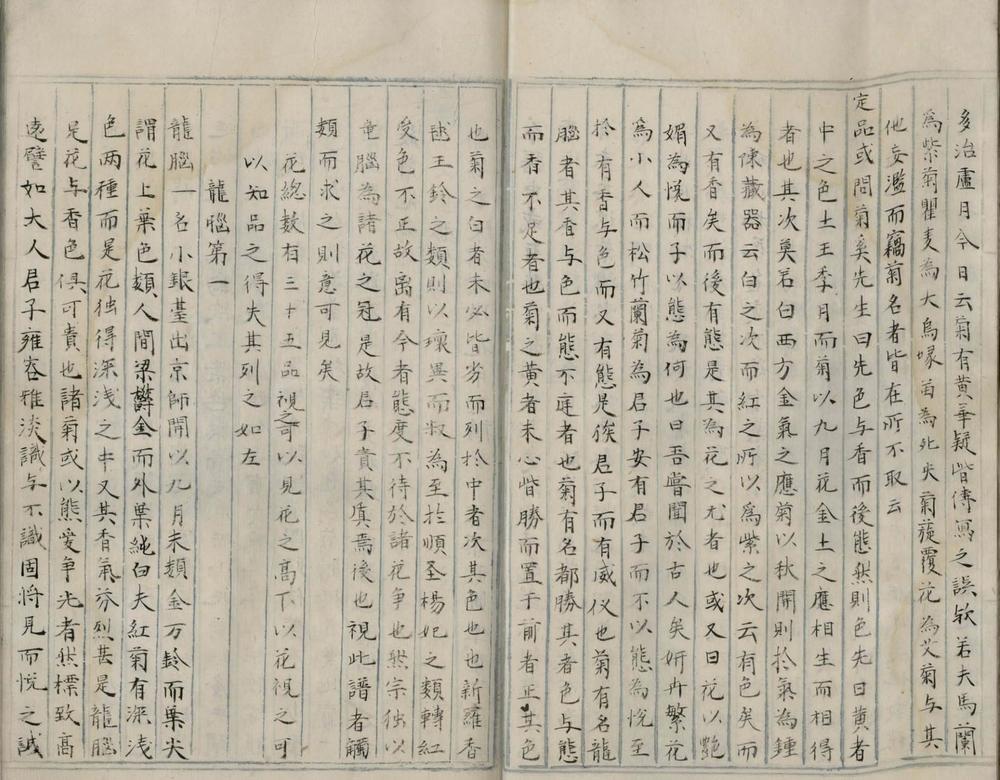 多治盧月今日云菊有黄華疑皆傳寫之誤欤若夫馬蘭
為紫菊瞿麦為大烏喙苗為鴘失菊蓯覆花為艾菊与其
他妄濫而竊菊名者皆在所不取云
定品或問菊奚先生曰先色与香而後態然則色先曰黄者
中之色土王季月而菊以九月花金土之應相生而相得
者也其次莫若白西方金氣之應菊以秋開則扵氣為鍾
為陳藏器云白之次而紅之所以為紫之次云有色矣而
又有香矣而後有態是其為花之尤者也或又曰花以艶
媚為悦而子以態為何也曰吾嘗聞於古人矣妍卉繁花
為小人而松竹蘭菊為君子安有君子而不以態為悦至
扵有香与色而又有態是猴君子而有威仪也菊有名龍
腦者其香与色而態不庭者也菊有名都勝其者色与態
而香不足者也菊之黄者未心皆勝而置于前者正其色
也菊之白者未必皆劣而列扵中者次其色也也新羅香
毬王鈴之類則以壞異而㳤為至扵順圣楊妃之類轉紅
受色不正故离有今者態度不待於諸花争也然宗独以
竜腦為諸花之冠是故君子貴其真焉後也視此譜者觸
類而求之則意可見矣
花總数有三十五品視之可以見花之高下以花視之可
以知品之得失其列之如左
龍腦第一
龍腦一名小銀䑓出京師開以九月末類金万鈴而葉尖
謂花上葉色類人間梁欝金而外葉純白夫紅菊有深浅
色两種而是花独得深浅之中又其香氣芬烈甚是龍腦
是花与香色俱可貴也諸菊或以態愛争先者然標致高
遠譬如大人君子雍容雅淡識与不識固将見而悦之誠